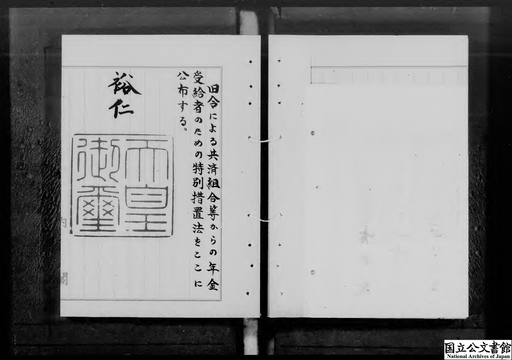 旧令による共済組合等からの年金
受給者のための特別措置法をここに
公布する。
裕仁
天皇
御璽
内閣
国立公文書館
National Archives of Japan